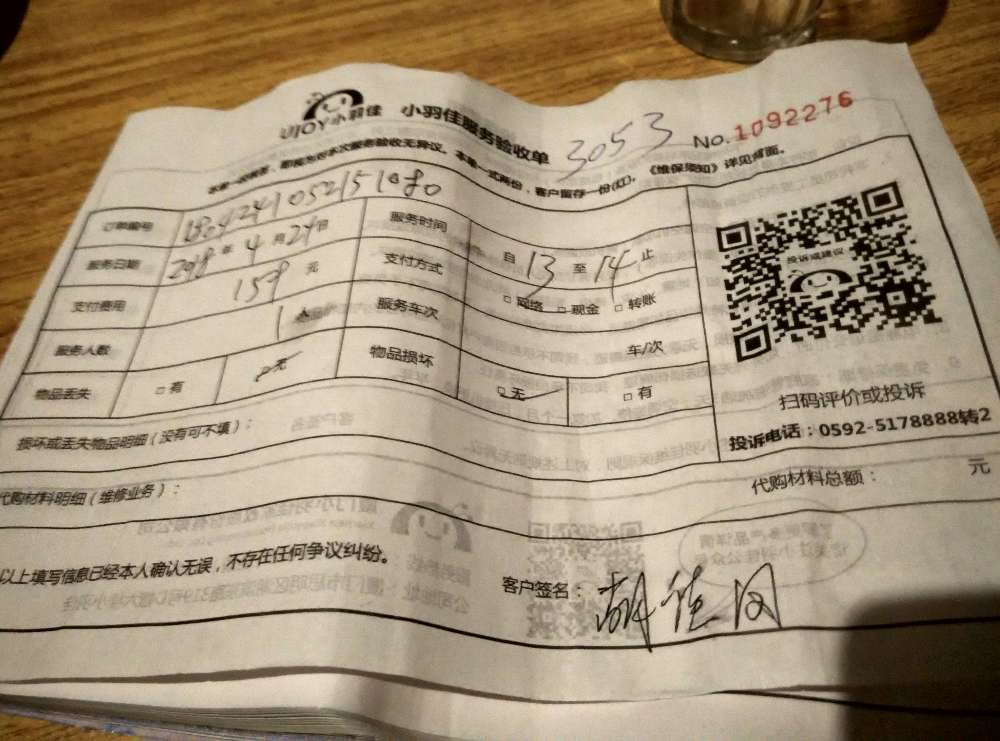 UJOY小羽佳 小羽佳服务验收单 3053 No.1092276
本单一式两份，客户留存一份(红)。《维保须知》详见桌面。
订单编号
服务时间 自 13 至 14 止
服务日期 年 4 月 24 日
支付方式 □网络 □现金 □转账
支付费用 159 元
服务车次 车/次
服务人数 1 人
物品丢失 □有 □无
物品损坏 □无 □有
投诉或建议
扫码评价或投诉
投诉电话：0592-5178888转2
损坏或丢失物品明细（没有可不填）：
代购材料明细（维修业务）：
代购材料总额： 元
以上填写信息已经本人确认无误，不存在任何争议纠纷。
客户签名：